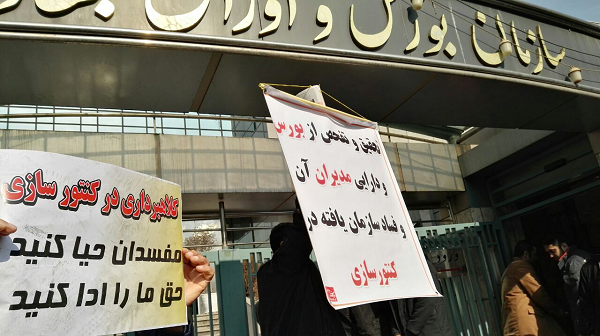 سازمان بورس و اوراق بهادار
تحقیق و تفحص از بورس
و دارایی مدیران آن
و فساد سازمان یافته در
کنتور سازی
کلاهبرداری در کنتور سازی
مفسدان حیا کنید
حق ما را ادا کنید